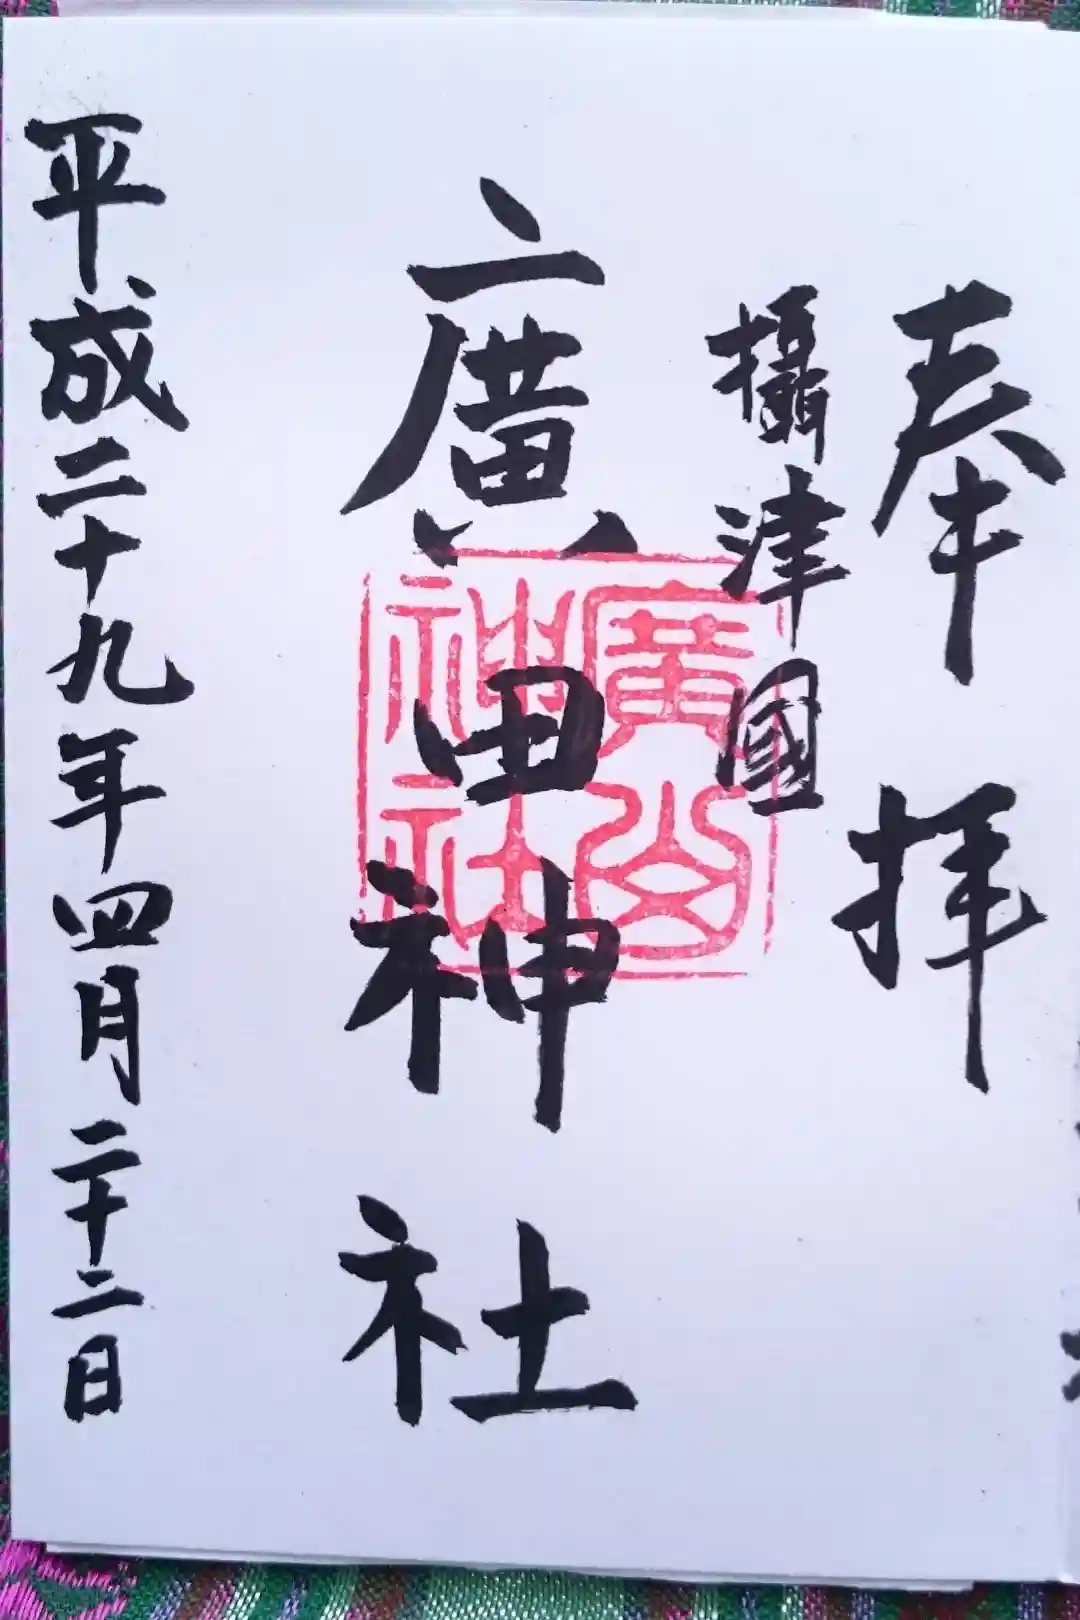 奉拝
攝津國
廣田神社
平成二十九年四月二十二日